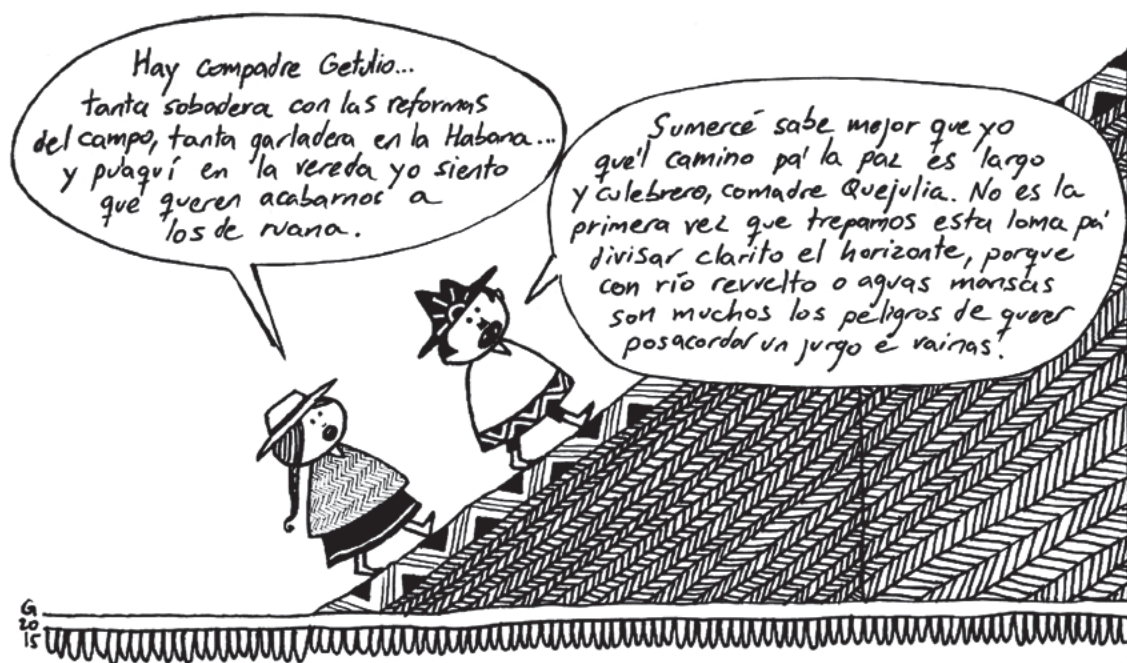 Hay compadre Getulio...
tanta sobadera con las reformas
del campo, tanta garladera en la Habana...
y pu'aquí en la vereda yo siento
que queren acabarnos a
los de ruana.
Sumercé sabe mejor que yo
que'l camino pa' la paz es largo
y culebrero, comadre Quejulia. No es la
primera vez que trepamos esta loma pa'
divisar clarito el horizonte, porque
con río revuelto o aguas mansas
son muchos los peligros de querer
posacordar un jurgo e vainas.
G
20
15